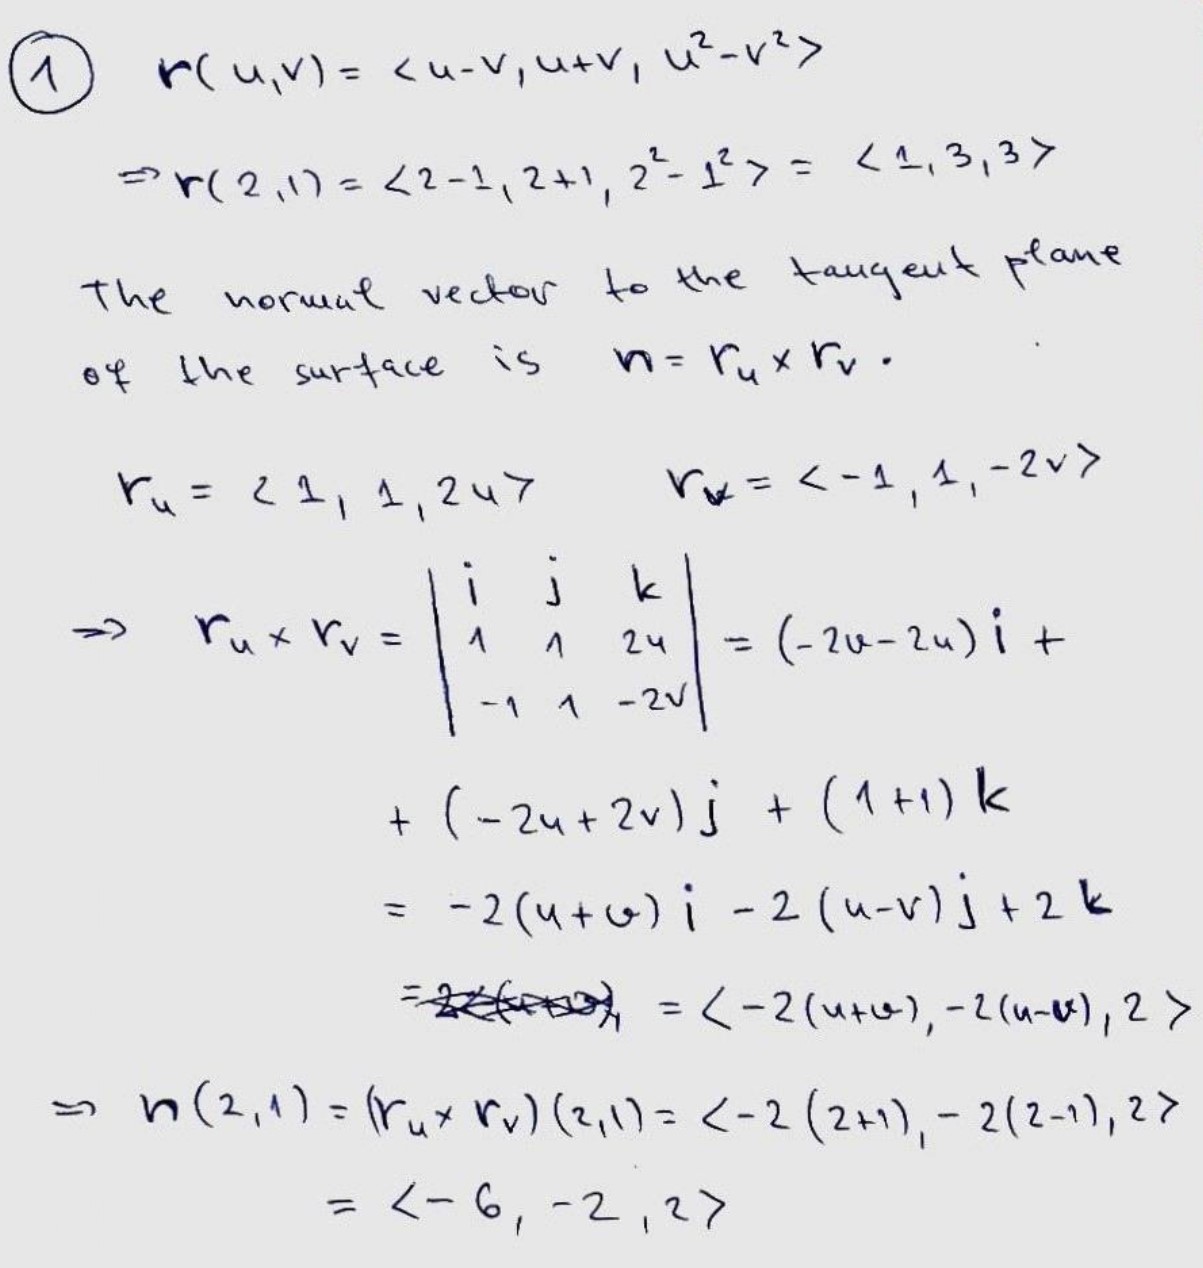 ① r(u,v) = <u-v, u+v, u²-v²>
⇒ r(2,1) = <2-1, 2+1, 2²-1²> = <1,3,3>
The normal vector to the tangent plane
of the surface is n = rᵤ × rᵥ.
rᵤ = <1, 1, 2u> rᵥ = <-1, 1, -2v>
⇒ rᵤ × rᵥ = | i j k |
| 1 1 2u | = (-2v-2u) i +
| -1 1 -2v |
+ (-2u+2v) j + (1+1) k
= -2(u+v) i - 2(u-v) j + 2 k
= = <-2(u+v), -2(u-v), 2>
⇒ n(2,1) = (rᵤ × rᵥ)(2,1) = <-2(2+1), -2(2-1), 2>
= <-6, -2, 2>